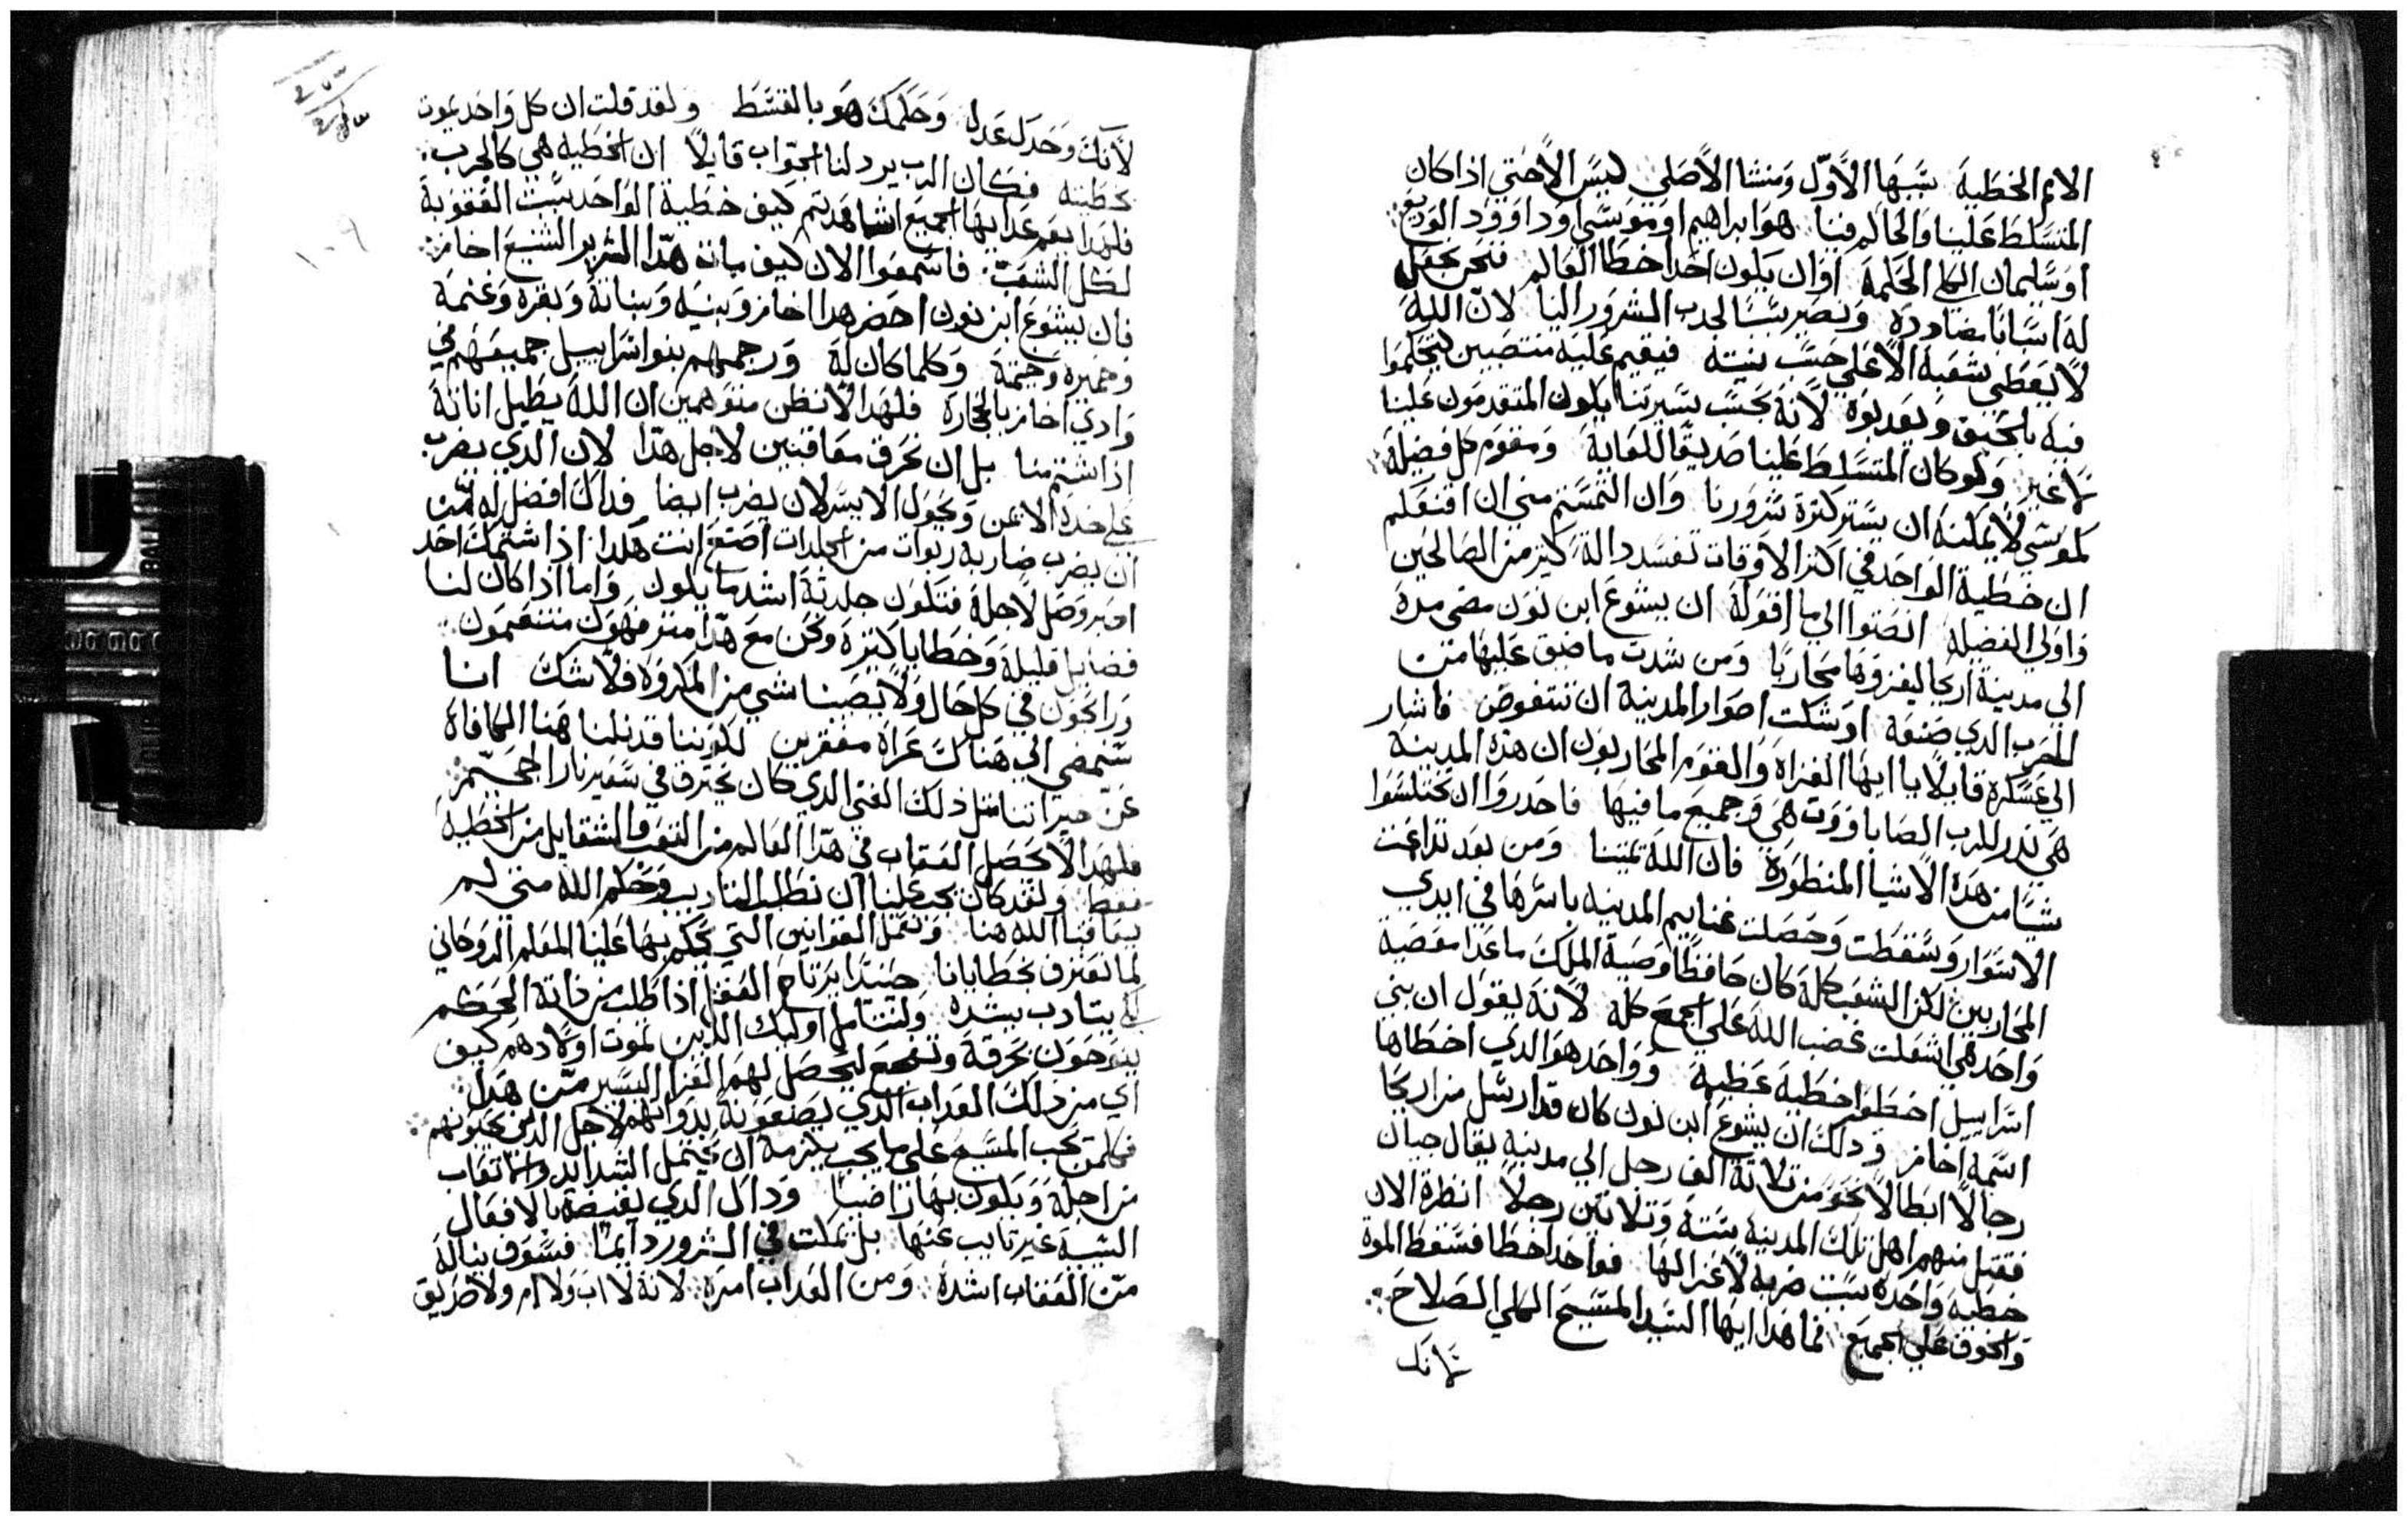 الام الخطية سببها الأول ومنشا الاصلي ليس الأحتي اذا كان
المتسلط علينا والحاكم فينا هو ابراهيم او موسى او داوود الوديع
او سليمان الكلي الحكمة او ان يكون احدا خطا العالم فنحن نجعل
له اسبابا مضادده ونصير سببا لجدب الشرور الينا لان الله
لا يعطي شعبه الا علي حسب نيته فيقيم عليه منتصبين ليتحكموا
فيه بالحيق ويعدبوه لانه بحسب سيرتنا يكون المتقدمون علينا
لا غير ولو كان المتسلط علينا صديقا للغاية ومقوم كل فضيلة
كموسي لا يمكنه ان يستر كثرة شرورنا وان التمستم مني ان اقنعكم
ان خطية الواحد في اكثر الاوقات تفسد دالة كثير من الصالحين
واولي الفضيلة انصتوا الي ما اقوله ان يشوع ابن نون مضي مدة
الي مدينة اريحا ليغزوها محاربا ومن شدت ما ضيق عليها من
الحرب الدي صنعه اوشكت اصوار المدينة ان تنقوض فاشار
الي عسكره قايلا يا ايها الغزاة والقوم المحاربون ان هذه المدينة
هي ندر للرب الصاباووت هي وجميع ما فيها فاحدروا ان تختلسوا
شيا من هده الاشيا المنظورة فان الله تمننا ومن بعد تداعت
الاسوار وسقطت وحصلت غنايم المدينه باسرها في ايدي
المحاربين لكن الشعب كله كان حافظا وصية الملك ما عدا معصية
واحد هي اشعلت غضب الله علي الجمع كله لانه يقول ان بني
اسراييل اخطوا خطية عظيمة وواحد هو الدي اخطاها
اسمه اخاز ودلك ان يشوع ابن نون كان قد ارسل من اريحا
رجالا ابطالا نحو من تلاتة الف رجل الي مدينه يقال جيان
فقتل منهم اهل تلك المدينه ستة وتلاتين رجلا انظر الان
خطية واحده سبت ضربه لا غزالها فواحد اخطا فسقط الموة
والخوف علي الجميع فما هدا ايها السيد المسيح الكلي الصلاح
لانك
لأنك وحدك عدل وحكمك هو بالقسط ولقد قلت ان كل واحد يموت
بخطيته فكان الرب يرد لنا الجواب قايلا ان الخطية هي كالجرب
فلهدا يعم عدابها الجميع اشاهدتم كيف خطية الواحد سبت العقوبة
لكل الشعب فاسمعوا الان كيف مات هدا الشرير الشنيع اخاز
فان يشوع ابن نون احضر هدا اخاز وبنيه وبناته وبقره وغنمه
وحميره وخيمته وكلما كان له ورجمهم بنوا اسراييل جميعهم في
وادي اخاز بالحجارة فلهدا لا نظن متوهمين ان الله يطيل اناته
اذا شتم منا بل ان نحرق معاقبين لاجل هدا لان الدي يضرب
علي خده الايمن ويحول الايسر لان يضرب ايضا فداك افضل له من
ان يضرب ضاربه ربوات من الجلدات اصنع انت هكدا اذا شتمك احد
اصبر وصل لاجله فتكون جلدته اشد ما يكون واما اذا كان لنا
فضايل قليلة وخطايا كثيرة ونحن مع هدا مترفهون متنعمون
ورابحون في كل حال ولا يصبنا شي من المكروة فلا شك اننا
سنمضي الي هناك عراة مفقرين لكوننا قد نلنا هنا المكافاة
عن خيراتنا مثل ذلك الغني الدي كان يحترق في سعير نار الجحيم
فلهدا لا يحصل العقاب في هدا العالم من التعب والشقا بل من الخطية
فقط ولقد كان يجب علينا ان نطلب التاديب وحكم الله متي لم
يعاقبنا الله هنا ونعمل القوانين التي يحكم بها علينا المعلم الروحاني
لما نعترف بخطايانا حيندا يرتاح العقل اذا طلب من ذاته الحكم
لكي يتادب بشده ولنتامل اوليك الدين تموت اولادهم كيف
ينوحون بحرقة وتفجع ليحصل لهم العزا اليسير من هدا
اي من دلك العداب الدي يصنعونه بدواتهم لاجل الدين يحبونهم
فكلمن يحب المسيح علي ما يجب يلزمه ان يحتمل الشدايد والاتعاب
من اجله ويكون بها راضيا وداك الدي يغيضه بالافعال
السية غير تايب عنها بل يمكت في الشرور دايما فسوف يناله
من العقاب اشده ومن العداب امره لانه لا اب ولا ام ولا طريق